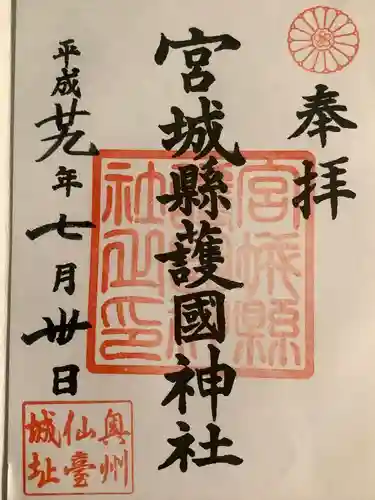 奉拝
宮城縣護國神社
平成廿九年七月卅日
宮城縣
護國神
社之印
奥州
仙臺
城址